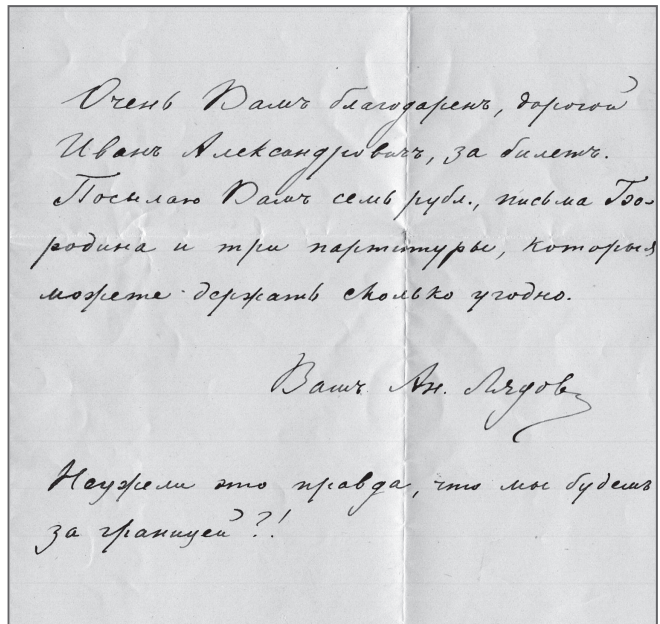 Очень Вамъ благодаренъ, дорогой
Иванъ Александровичъ, за билетъ.
Посылаю Вамъ семь рубл., письма Бо-
родина и три партитуры, которыя
можете держать сколько угодно.
Вашъ Ан. Лядовъ
Неужели это правда, что мы будемъ
за границей?!